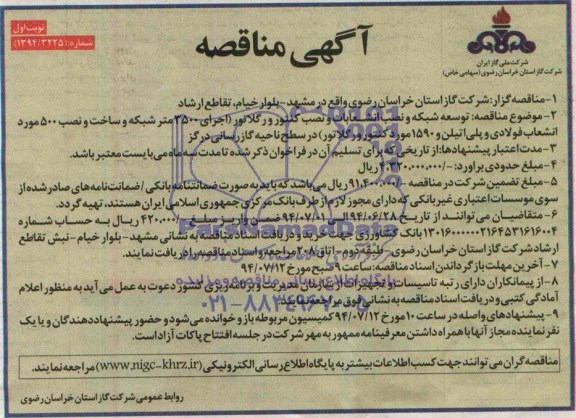 نوبت اول
شماره: (۱۳۹۴/۳۲۲۵)
آگهی مناقصه
شرکت ملی گاز ایران
شرکت گاز استان خراسان رضوی (سهامی خاص)
۱-مناقصه گزار: شرکت گاز استان خراسان رضوی واقع در مشهد-بلوار خیام، تقاطع ارشاد
۲-موضوع مناقصه: توسعه شبکه و نصب انشعابات و نصب کنتور و رگلاتور (اجرای ۳۵۰۰ متر شبکه و ساخت و نصب ۵۰۰ مورد
انشعاب فولادی و پلی اتیلن و ۱۵۹۰ مورد کنتور و رگلاتور) در سطح ناحیه گازرسانی درگز
۳- مدت اعتبار پیشنهادها: از تاریخی که برای تسلیم آن در فراخوان ذکر شده تا مدت سه ماه می بایست معتبر باشد.
۴-مبلغ حدودی براورد: ریال
۵- مبلغ تضمین شرکت در مناقصه ۹۱،۴۰۰،۰۰۰ ریال می باشد که باید به صورت ضمانتنامه بانکی / ضمانت نامه های صادر شده از
سوی موسسات اعتباری غیر بانکی که دارای مجوز لازم از طرف بانک مرکزی جمهوری اسلامی ایران هستند، تهیه گردد.
۶- متقاضیان می توانند از تاریخ ۹۴/۰۶/۲۸ الی ۹۴/۰۷/۰۱ ضمن واریز مبلغ ۴۲۰،۰۰۰ ریال به حساب شماره
بانک کشاورزی جهت خرید و دریافت اسناد مناقصه به نشانی مشهد - بلوار خیام - نبش تقاطع
ارشاد شرکت گاز استان خراسان رضوی - طبقه دوم - اتاق ۲۰۸ مراجعه و اسناد مناقصه را دریافت نمایند.
۷- آخرین مهلت بازگرداندن اسناد مناقصه ساعت ۹ صبح مورخ ۹۴/۰۷/۱۲
۸- از پیمانکاران دارای رتبه تاسیسات و تجهیزات از سازمان مدیریت و برنامه ریزی کشور دعوت به عمل می آید به منظور اعلام
آمادگی کتبی و دریافت اسناد مناقصه به نشانی فوق مراجعه نمایند.
۹- پیشنهادهای واصله در ساعت ۱۰ مورخ ۹۴/۰۷/۱۲ کمیسیون مربوطه باز و خوانده می شود و حضور پیشنهاد دهندگان و یا یک
نفر نماینده مجاز آنها با همراه داشتن معرفینامه ممهور به مهر شرکت در جلسه افتتاح پاکات آزاد است.
مناقصه گران می توانند جهت کسب اطلاعات بیشتر به پایگاه اطلاع رسانی الکترونیکی (www.nigc-khrz.ir) مراجعه نمایند.
روابط عمومی شرکت گاز استان خراسان رضوی
ParsNamadData
پایگاه اطلاع رسانی مناقصه و مزایده
۰۲۱-۸۸۳۴۹۶۷۰